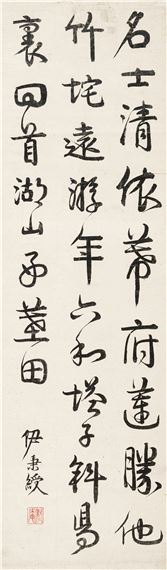 名士清依幕府蓮勝他
竹垞遠游年六和塔子斜陽
裏回首湖山田
伊秉綬